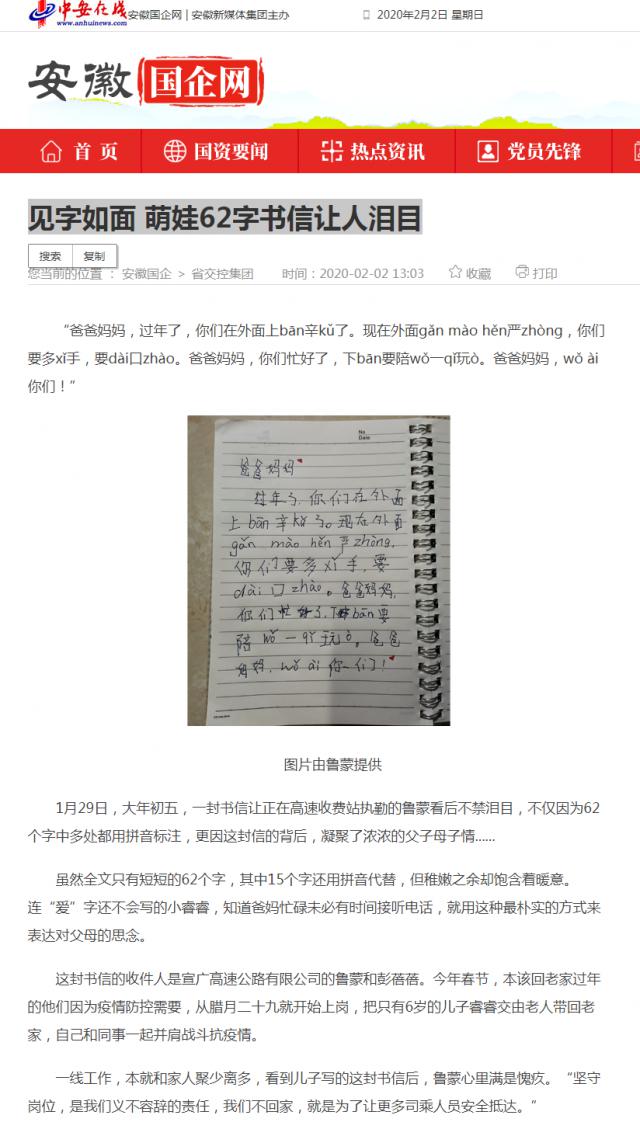 中安在线
www.anhuinews.com
安徽国企网 | 安徽新媒体集团主办
2020年2月2日 星期日
安徽国企网
首 页
国资要闻
热点资讯
党员先锋
见字如面 萌娃62字书信让人泪目
搜索 复制
您当前的位置 ： 安徽国企 > 省交控集团 时间：2020-02-02 13:03 收藏 打印
“爸爸妈妈，过年了，你们在外面上bān辛kǔ了。现在外面gǎn mào hěn严zhòng，你们
要多xǐ手，要dài口zhào。爸爸妈妈，你们忙好了，下bān要陪wǒ一qǐ玩ò。爸爸妈妈，wǒ ài
你们！”
No.
Date
爸爸妈妈
过年了，你们在外面
上bān辛kǔ了。现在外面
gǎn mào hěn 严zhòng，
你们要多xǐ手，要
dài 口 zhào。爸爸妈妈，
你们忙好了，下bān要
陪wǒ一qǐ玩ò。爸爸
妈妈，wǒ ài 你们！
图片由鲁蒙提供
1月29日，大年初五，一封书信让正在高速收费站执勤的鲁蒙看后不禁泪目，不仅因为62
个字中多处都用拼音标注，更因这封信的背后，凝聚了浓浓的父子母子情......
虽然全文只有短短的62个字，其中15个字还用拼音代替，但稚嫩之余却饱含着暖意。
连“爱”字还不会写的小睿睿，知道爸妈忙碌未必有时间接听电话，就用这种最朴实的方式来
表达对父母的思念。
这封书信的收件人是宣广高速公路有限公司的鲁蒙和彭蓓蓓。今年春节，本该回老家过年
的他们因为疫情防控需要，从腊月二十九就开始上岗，把只有6岁的儿子睿睿交由老人带回老
家，自己和同事一起并肩战斗抗疫情。
一线工作，本就和家人聚少离多，看到儿子写的这封书信后，鲁蒙心里满是愧疚。“坚守
岗位，是我们义不容辞的责任，我们不回家，就是为了让更多司乘人员安全抵达。”